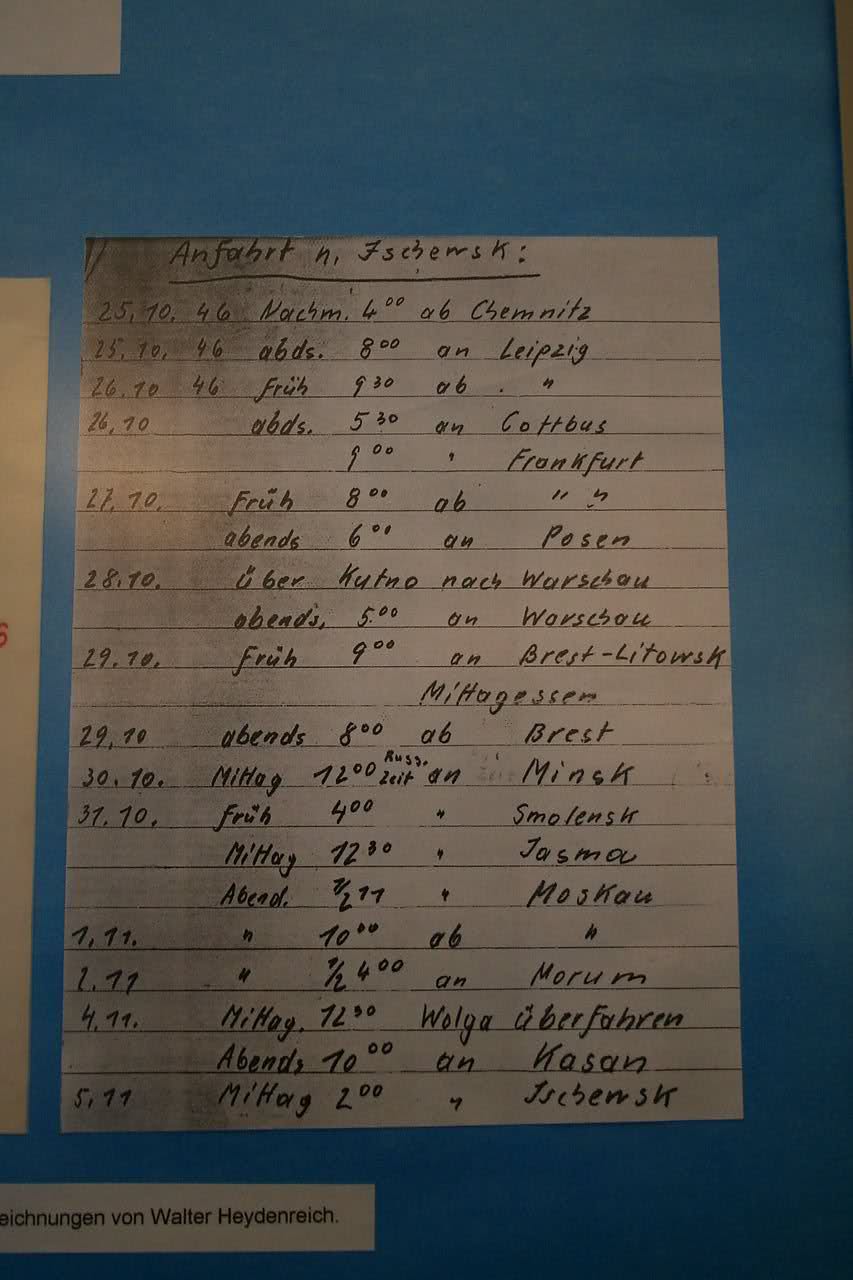 Anfahrt n. Ischewsk:
25.10. 46 Nachm. 4⁰⁰ ab Chemnitz
25.10. 46 abds. 8⁰⁰ an Leipzig
26.10 46 früh 9³⁰ ab . "
26.10 abds. 5³⁰ an Cottbus
9⁰⁰ " Frankfurt
27.10. früh 8⁰⁰ ab " "
abends 6⁰⁰ an Posen
28.10. über Kutno nach Warschau
abends, 5.⁰⁰ an Warschau
29.10. früh 9⁰⁰ an Brest-Litowsk
Mittagessen
29.10 abends 8⁰⁰ ab Brest
30.10. Mittag 12⁰⁰ Russ. Zeit an Minsk
31.10. früh 4⁰⁰ " Smolensk
Mittag 12³⁰ " Jasma
Abend. ½11 " Moskau
1.11. " 10⁰⁰ ab "
2.11 " ½4⁰⁰ an Morum
4.11. Mittag. 12³⁰ Wolga überfahren
Abends 10⁰⁰ an Kasan
5.11 Mittag 2⁰⁰ " Ischewsk
eichnungen von Walter Heydenreich.